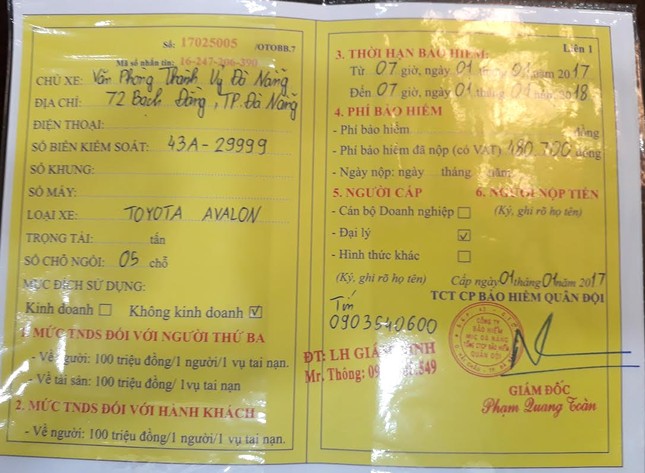 Số: 17025005 /OTOBB.7
Mã số nhắn tin: 16-247-206-390
CHỦ XE: Văn Phòng Thành Uỷ Đà Nẵng
ĐỊA CHỈ: 72 Bạch Đằng, TP. Đà Nẵng
ĐIỆN THOẠI:
SỐ BIỂN KIỂM SOÁT: 43A-29999
SỐ KHUNG:
SỐ MÁY:
LOẠI XE: TOYOTA AVALON
TRỌNG TẢI: tấn
SỐ CHỖ NGỒI: 05 chỗ
MỤC ĐÍCH SỬ DỤNG:
Kinh doanh Không kinh doanh
1. MỨC TNDS ĐỐI VỚI NGƯỜI THỨ BA
- Về người: 100 triệu đồng/1 người/1 vụ tai nạn.
- Về tài sản: 100 triệu đồng/ 1vụ tai nạn
2. MỨC TNDS ĐỐI VỚI HÀNH KHÁCH
- Về người: 100 triệu đồng/1 người/1 vụ tai nạn.
3. THỜI HẠN BẢO HIỂM: Liên 1
Từ 07 giờ, ngày 01 tháng 01 năm 2017
Đến 07 giờ, ngày 01 tháng 01 năm 2018
4. PHÍ BẢO HIỂM
- Phí bảo hiểm đồng
- Phí bảo hiểm đã nộp (có VAT) 480.700 đồng
- Ngày nộp: ngày tháng năm
5. NGƯỜI CẤP 6. NGƯỜI NỘP TIỀN
- Cán bộ Doanh nghiệp (Ký, ghi rõ họ tên)
- Đại lý
- Hình thức khác
(Ký, ghi rõ họ tên) Cấp ngày 01 tháng 01 năm 2017
TCT CP BẢO HIỂM QUÂN ĐỘI
0903540600
CÔNG TY
BẢO HIỂM
MIC ĐÀ NẴNG
QUÂN ĐỘI
ĐT: LH GIÁM ĐỊNH
Mr. Thông: 549
GIÁM ĐỐC
Phạm Quang Toàn